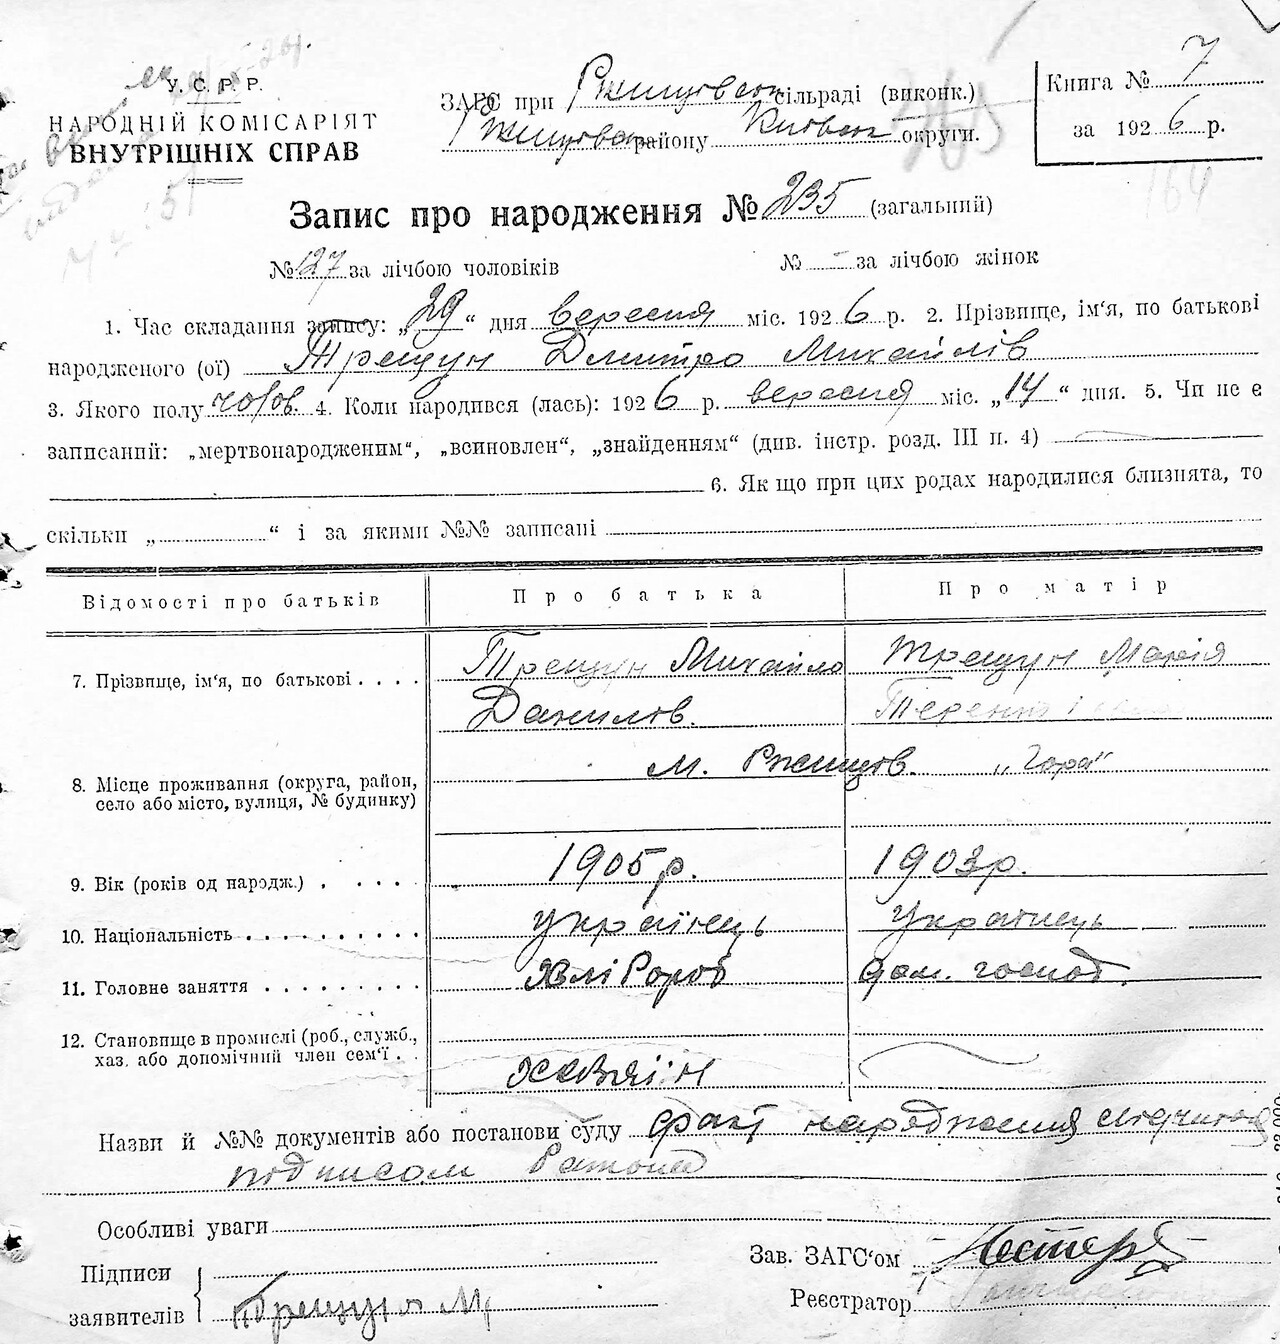 У.С.Р.Р.
НАРОДНІЙ КОМІСАРІЯТ
ВНУТРІШНІХ СПРАВ
ЗАГС при Ржищовськ сільраді (виконк.)
Ржищовськ району Київськ округи.
Книга № 7
за 1926 р.
Запис про народження № 235 (загальний)
№ 127 за лічбою чоловіків № – за лічбою жінок
1. Час складання запису: „29“ дня вересня міс. 1926 р. 2. Прізвище, ім‘я, по батькові
народженого (ої) Трещун Дмитро Михайлів
3. Якого полу чолов. 4. Коли народився (лась): 1926 р. вересня міс. „14“ дня. 5. Чи не є
записаний: „мертвонародженим“, „всиновлен“, „знайденням“ (див. інстр. розд. III п. 4)
6. Якщо при цих родах народилися близнята, то
скільки „ “ і за якими №№ записані
Відомості про батьків Про батька Про матір
7. Прізвище, ім‘я, по батькові Трещун Михайло Трещун Марія
Данилов.
8. Місце проживання (округа, район, село або місто, вулиця, № будинку) м. Ржищов. „Гора“
9. Вік (років од народж.) 1905 р. 1903 р.
10. Національність українець українець
11. Головне заняття хлібороб дом. господ.
12. Становище в промислі (роб., служб., хаз. або допомічний член сем‘ї хазяїн
Назви й №№ документів або постанови суду факт народження
підписом
Особливі уваги
Зав. ЗАГС‘ом
Підписи
заявителів Трещун М
Реєстратор